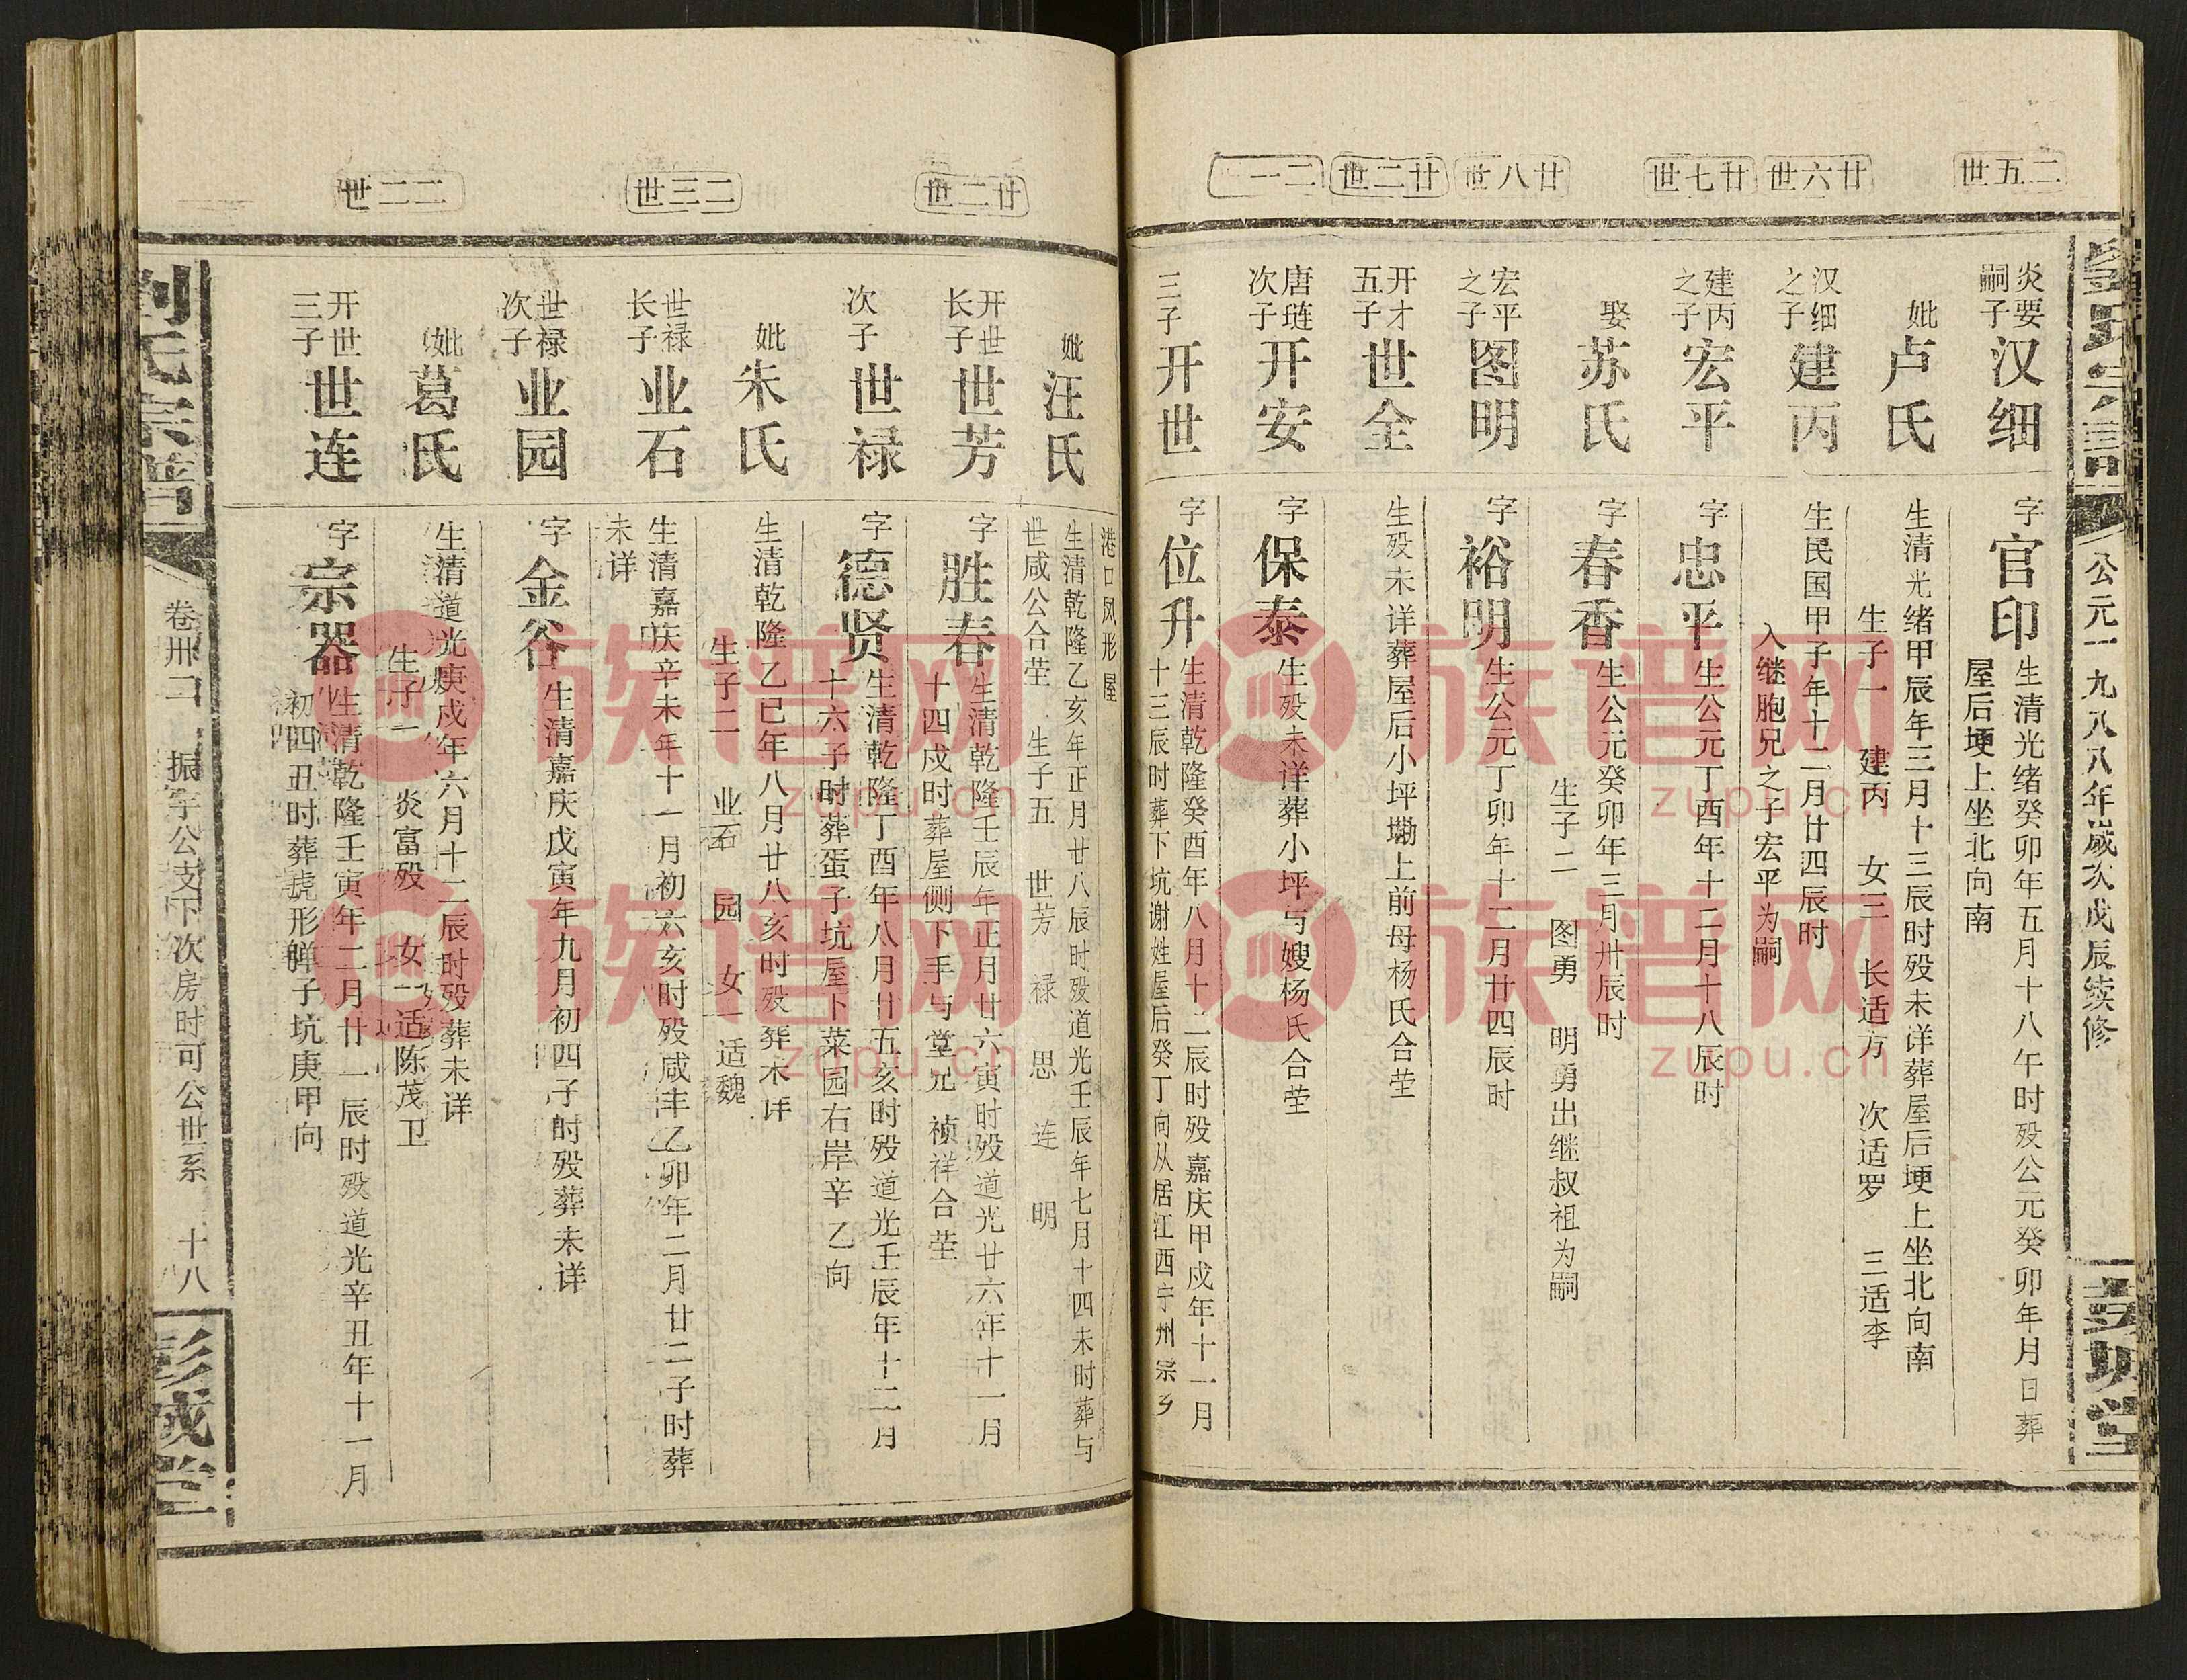 公元一九八八年岁次戊辰续修
二五世
炎要嗣子
汉细
字官印
生清光绪癸卯年五月十八午时殁公元癸卯年月日葬
屋后埂上坐北向南
妣卢氏
生清光绪甲辰年三月十三辰时殁未详葬屋后埂上坐北向南
生子一 建丙 女三 长适方 次适罗 三适李
廿六世
汉细之子
建丙
生民国甲子年十二月廿四辰时
入继胞兄之子宏平为嗣
廿七世
建丙之子
宏平
字忠平
生公元丁酉年十二月十八辰时
娶苏氏
字春香
生公元癸卯年三月卅辰时
生子二 图勇 明勇出继叔祖为嗣
廿八世
宏平之子
图明
字裕明
生公元丁卯年十二月廿四辰时
廿二世
开才五子
世全
生殁未详葬屋后小坪墈上前母杨氏合茔
二一
唐琏次子
开安
字保泰
生殁未详葬小坪与嫂杨氏合茔
三子
开世
字位升
生清乾隆癸酉年八月十二辰时殁嘉庆甲戌年十一月
十三辰时葬下坑谢姓屋后癸丁向从居江西宁州宗乡
港口凤形屋
妣汪氏
生清乾隆乙亥年正月廿八辰时殁道光壬辰年七月十四未时葬与
世咸公合茔 生子五 世芳 禄 思 连 明
廿二世
开世长子
世芳
字胜春
生清乾隆壬辰年正月廿六寅时殁道光廿六年十一月
十四戌时葬屋侧下手与堂兄祯祥合茔
次子
世禄
字德贤
生清乾隆丁酉年八月廿五亥时殁道光壬辰年十二月
十六子时葬蛋子坑屋下菜园右岸辛乙向
妣朱氏
生清乾隆乙巳年八月廿八亥时殁葬未详
生子二 业石 园 女一适魏
二三世
世禄长子
业石
生清嘉庆辛未年十一月初六亥时殁咸丰乙卯年二月廿二子时葬
未详
世禄次子
业园
字金谷
生清嘉庆戊寅年九月初四子时殁葬未详
妣葛氏
生清道光庚戌年六月十二辰时殁葬未详
生子一 炎富殁 女一适陈茂卫
二二世
开世三子
世连
字宗器
生清乾隆壬寅年二月廿一辰时殁道光辛丑年十一月
初四丑时葬虎形蝉子坑庚甲向
刘氏宗谱
卷卅二 振宇公支下次房时可公世系 十八
彭城堂
族谱网
zupu.cn
族谱网
zupu.cn
族谱网
zupu.cn
族谱网
zupu.cn